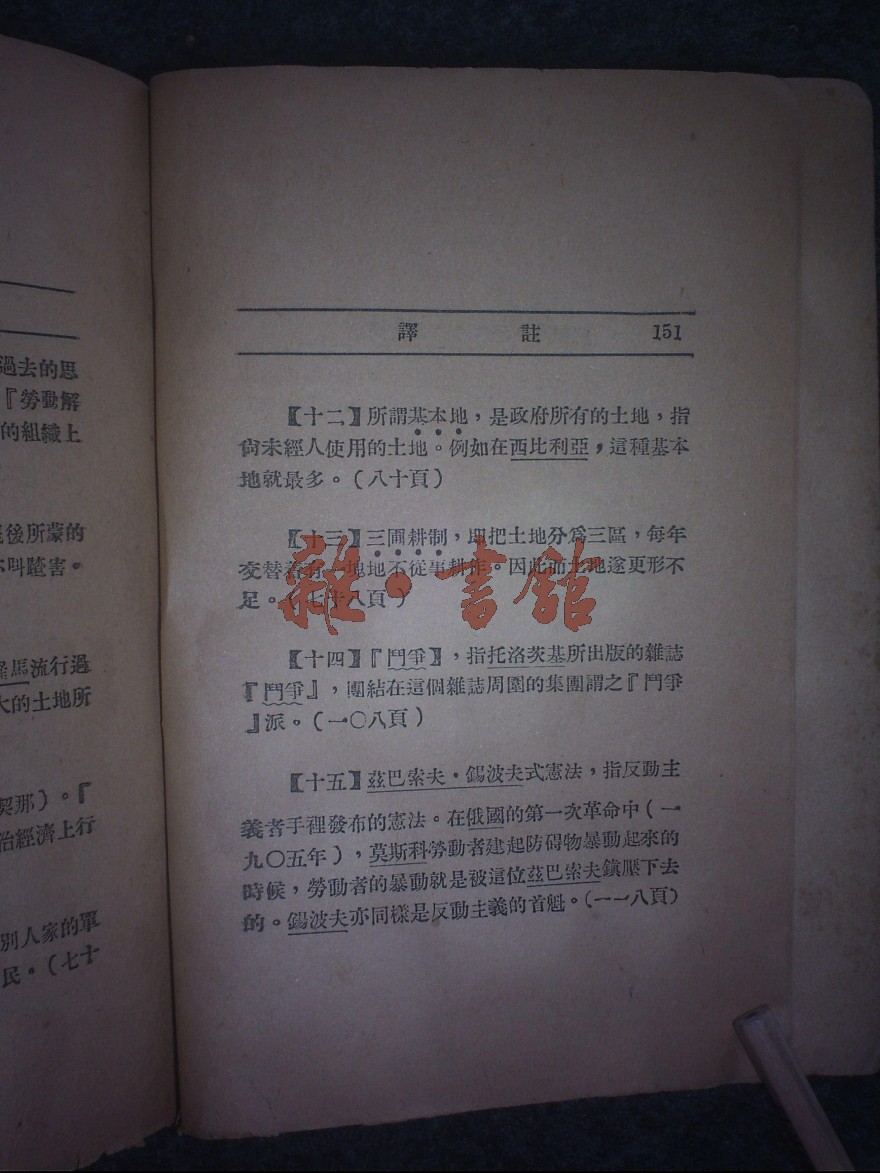 過去的思
『勞動解
的組織上
後所蒙的
叫蹉害。
馬流行過
大的土地所
契那)。『
治經濟上行
別人家的單
民。(七十
譯 註 151
【十二】所謂基本地，是政府所有的土地，指
尙未經人使用的土地。例如在西比利亞，這種基本
地就最多。(八十頁)
【十三】三圃耕制，即把土地分爲三區，每年
交替着有一塊地不從事耕作。因此而土地遂更形不
足。(七十八頁)
【十四】『鬥爭』，指托洛茨基所出版的雜誌
『鬥爭』，團結在這個雜誌周圍的集團謂之『鬥爭
』派。(一〇八頁)
【十五】茲巴索夫·錫波夫式憲法，指反動主
義者手裡發布的憲法。在俄國的第一次革命中(一
九〇五年)，莫斯科勞動者建起防碍物暴動起來的
時候，勞動者的暴動就是被這位茲巴索夫鎭壓下去
的。錫波夫亦同樣是反動主義的首魁。(一一八頁)
雜·書館